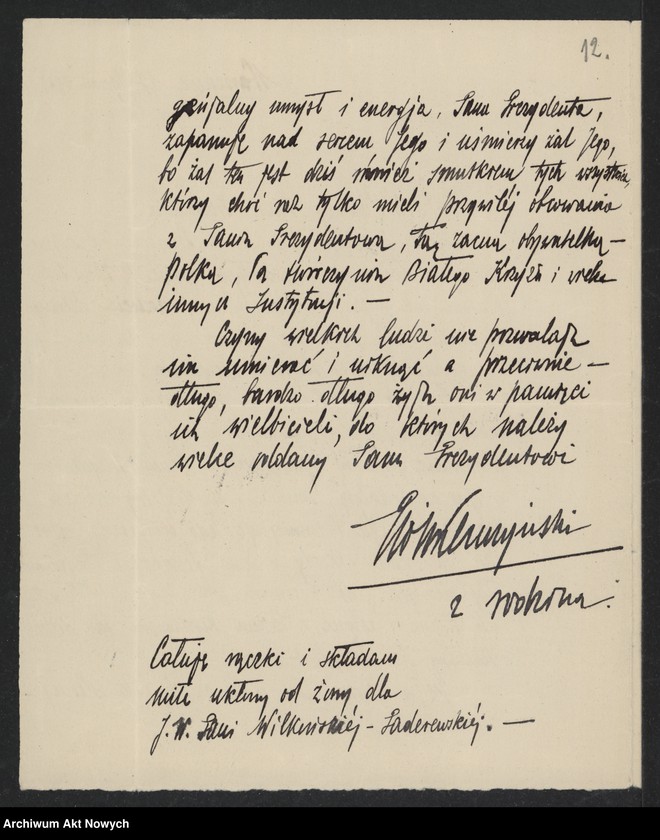 12.
genjalny umysł i energja, Pana Prezydenta,
zapanuje nad sercem Jego i uśmierzy żal Jego,
bo żal ten jest dziś również smutkiem tych wszystkich,
którzy choć raz tylko mieli przywilej obcowania
z Panią Prezydentową, Tą zacną obywatelką —
Polką, Tą twórczynią Białego Krzyża i wielu
innych Instytucji. —
Czyny wielkich ludzi nie pozwalają
im umierać i niknąć a przeciwnie —
długo, bardzo długo żyją oni w pamięci
ich wielbicieli, do których należy
wielce oddany Panu Prezydentowi
z rodziną.
Całuję rączki i składam
miłe ukłony od żony dla
J. W. Pani Wilkońskiéj - Paderewskiéj. —
Archiwum Akt Nowych